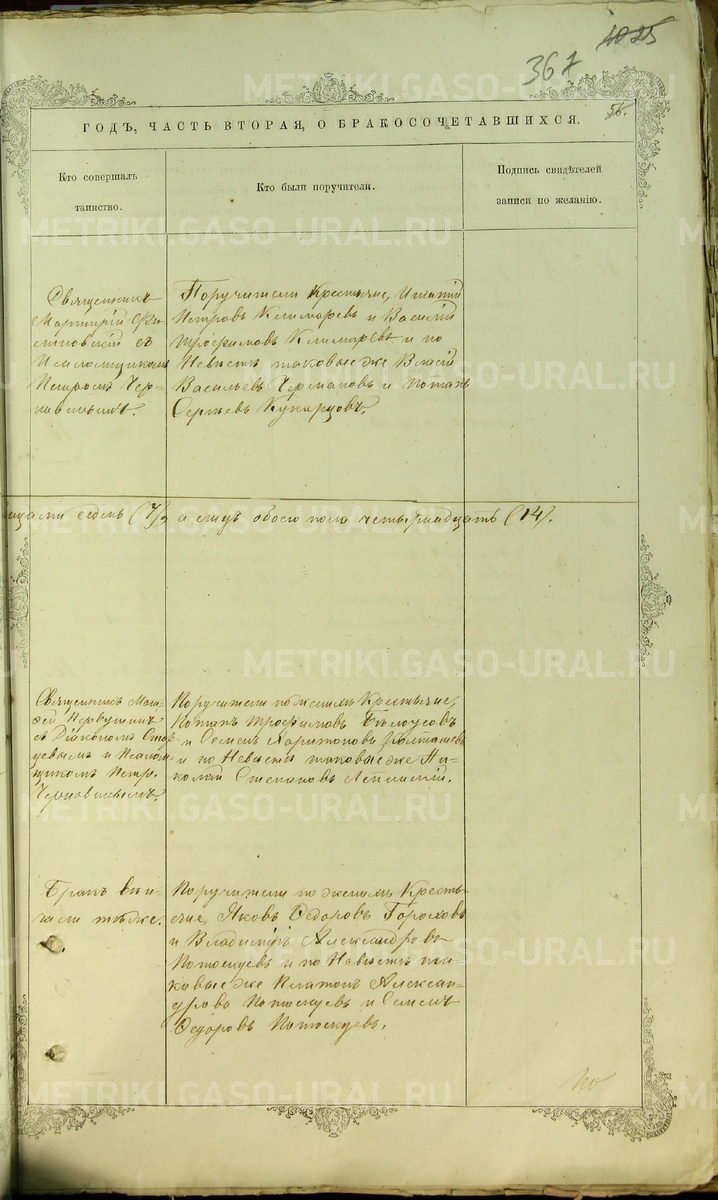 367
ГОДЪ, ЧАСТЬ ВТОРАЯ, О БРАКОСОЧЕТАВШИХСЯ.
56.
Кто совершалъ
таинство.
Кто были поручители.
Подпись свидѣтелей
записи по желанію.
Священникъ
Мартирій
съ
Псаломщикомъ
Петромъ Чер-
Поручители Крестьяне, Игнатій
Петровъ Климаревъ и Василій
Трофимовъ Климаревъ и по
Невѣстѣ таковые же
Васильевъ и Потапъ
Сергѣевъ Кукарцовъ.
седмь (7), а лицъ обоего пола четырнадцать (14).
Священникъ Мат-
фей
съ Діакономъ
и Псалом-
щикомъ Петр.
Поручители по женихѣ Крестьяне,
Потапъ Трофимовъ Бѣлоусовъ
и Семенъ Харитоновъ
и по Невѣстѣ таковые же Ни-
колай Степановъ
Бракъ вѣн-
чали тѣ же.
Поручители по женихѣ Кресть-
яне, Яковъ Ѳедоровъ Гороховъ
и Владиміръ Александровъ
Потоскуевъ и по Невѣстѣ та-
ковые же Платонъ Алексан-
дровъ Потоскуевъ и Семенъ
Ѳедоровъ Потоскуевъ.
METRIKI.GASO-URAL.RU